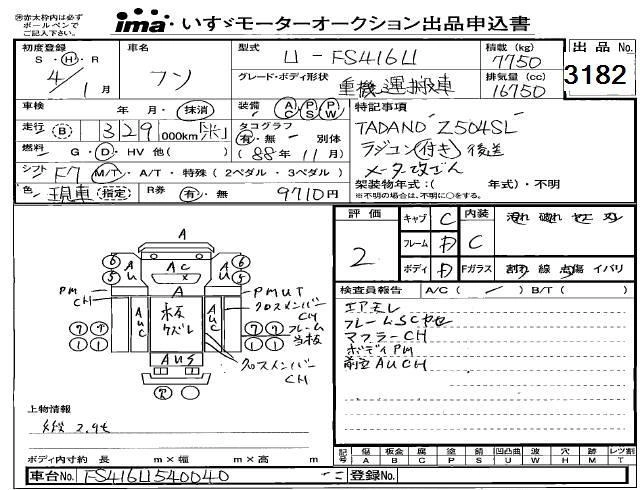 ※赤太枠内は必ず
ボールペンで
ご記入下さい。
ima いすゞモーターオークション出品申込書
初度登録
S・H・R
4/1月
車名
フソ
型式
U-FS416U
積載 (kg)
7750
出品No.
3182
グレード・ボディ形状
重機運搬車
排気量 (cc)
16750
車検 年・月・抹消
装備 AC PS PW
特記事項
走行 (B) 329 000km [米]
タコグラフ
有・無 別体
(88年11月)
TADANO Z504SL
ラジコン付き 後送
メーター改ざん
燃料 G・D・HV 他( )
シフト F7 M/T・A/T・特殊(2ペダル・3ペダル)
架装物年式:( 年式)・不明
※不明の場合は、不明に○をする。
色 現車 (指定)
R券 有・無 9710円
評価
2
キャブ C
フレーム D
ボディ D
内装 C
Fガラス
汚れ 破れ ヤニ 刃
割れ 線 点傷 イバリ
検査員報告 A/C( / ) B/T( )
エアモレ
フレームSCヤセ
マフラーCH
ボディPM
前立AUCH
A
6 5
AU
AC
AU
6 5
PM
CH
A
PMUT
クロスメンバー
CH
AUC
板
ケズレ
AUC
フレーム
当板
7 7
1 1
7 7
1 1
AUS
クロスメンバー
CH
穴
上物情報
2.9t
ボディ内寸約 長 m×幅 m×高 m
記号
傷 A
板金 B
腐 C
塗 P
錆 S
凹凸曲 U
波 W
穴 H
跡 M
レツ割 T
車台No. FS416U540040
登録No.